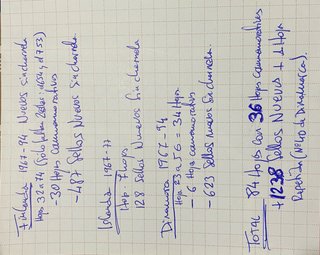 Finlandia 1967-94 Nuevos sin charnela
Hojas 32 a 74 (Solo falta
- 30 Hojas Conmemorativas
- 487 Sellos Nuevos sin charnela
Islandia 1967-77
Hoja
128 Sellos Nuevos sin charnela
Dinamarca 1967-94
Hojas 23 a 56 = 34 Hojas
- 6 Hojas Conmemorativas
- 623 Sellos nuevos sin charnela
TOTAL 84 Hojas con 36 Hojas Conmemorativas
+ 1238 Sellos Nuevos + 1 Hoja
Repetida (Nº 40 de Dinamarca).